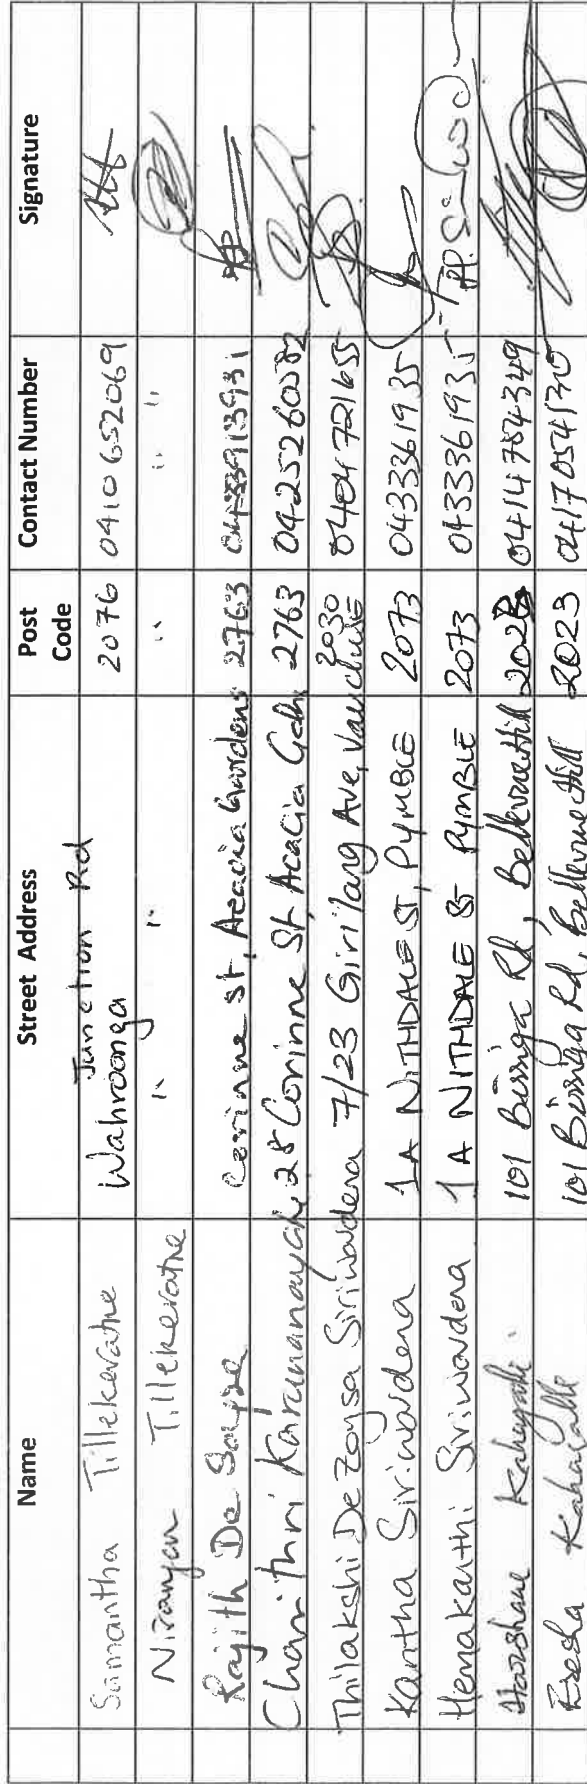 Name Street Address Post Code Contact Number Signature
Samantha Tillekeratne Junction Rd Wahroonga 2076 0410652069
Niranjan Tillekeratne " " " " "
Rajith De Corinne St, Acacia Gardens 2763
Charithri Karunanayake 28 Corinne St, Acacia Gdns 2763
Thilakshi De Zoysa Siriwardena 7/23 Girilang Ave, Vaucluse 2030 0404721655
Kantha Siriwardena 1A NITHDALE ST, PYMBLE 2073 0433361935
Hemakanthi Siriwardena 1A NITHDALE St PYMBLE 2073 0433361935
101 Birriga Rd, Bellevue Hill 0414784349
101 Birriga Rd, Bellevue Hill 2023